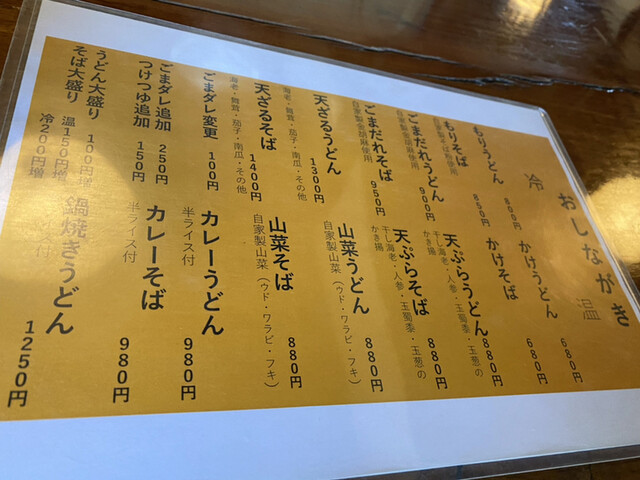 おしながき
冷
もりうどん
800円
もりそば
自家製そば粉使用
850円
ごまだれうどん
自家製金胡麻使用
900円
ごまだれそば
自家製金胡麻使用
950円
天ざるうどん
海老・舞茸・茄子・南瓜・その他
1300円
天ざるそば
海老・舞茸・茄子・南瓜・その他
1400円
ごまダレ変更 100円
ごまダレ追加 250円
つけつゆ追加 150円
うどん大盛り 100円増
そば大盛り 温150円増
冷200円増
温
かけうどん 680円
かけそば 680円
天ぷらうどん 880円
干し海老・人参・玉蜀黍・玉葱の
かき揚
天ぷらそば 880円
干し海老・人参・玉蜀黍・玉葱の
かき揚
山菜うどん 880円
自家製山菜(ウド・ワラビ・フキ)
山菜そば 880円
自家製山菜(ウド・ワラビ・フキ)
カレーうどん 980円
半ライス付
カレーそば 980円
半ライス付
鍋焼きうどん 1250円
付